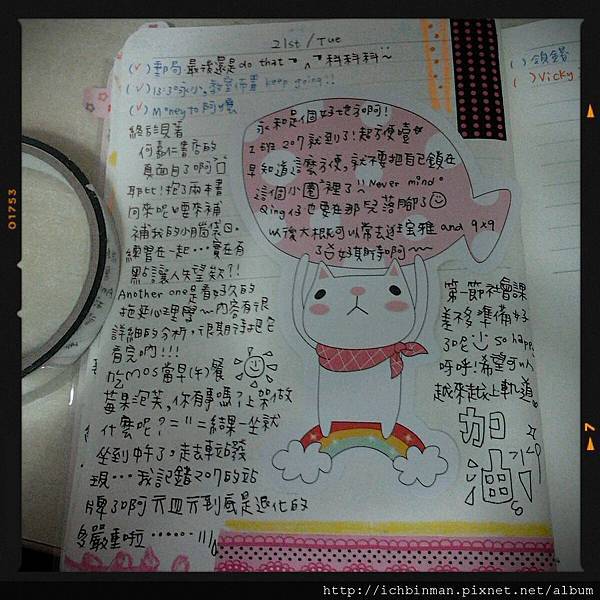 21st / Tue
(v) 郵局 最後還是 do that ㄟ 科科科~
(v) 永小. 教室佈置 keep going!!
(v) Money to 阿
永和是個好地方啊!
1班207就到了!超方便噎
早知道這麼方便, 就不要把自己鎖在
這個小圈裡了!! Never mind。
Qing 仔也要在那兒落腳了
以後大概可以常去逛寶雅 and 9x9
了 好期待啊~~
終於見著
何嘉仁書店的
真面目了啊
耶比! 抱了兩本書
回來呢 要來補
補我的小腦袋.
練習在一起…實在有
點讓人失望欸?!
Another one是看好久的
拖延心理學~內容有很
詳細的分析, 很期待把它
看完吶!!!
吃MOS當早(午)餐
莓果泡芙, 你有事嗎?上架做
什麼呢? 結果一坐就
坐到中午了, 走去車站發
現…我記錯207的站
牌了啊 到底是退化的
多嚴重啦……
第一節社會課
差不多準備好
了呢 so happy
呼呼!希望可以
越來越上軌道。
加
油
( ) 領錢
( ) Vicky
01753
7
http://ichbinman.pixnet.net/album